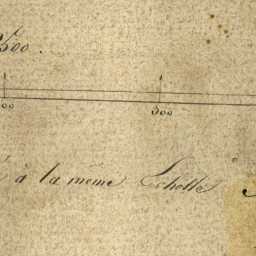 500.
00 300
à la même Echelle